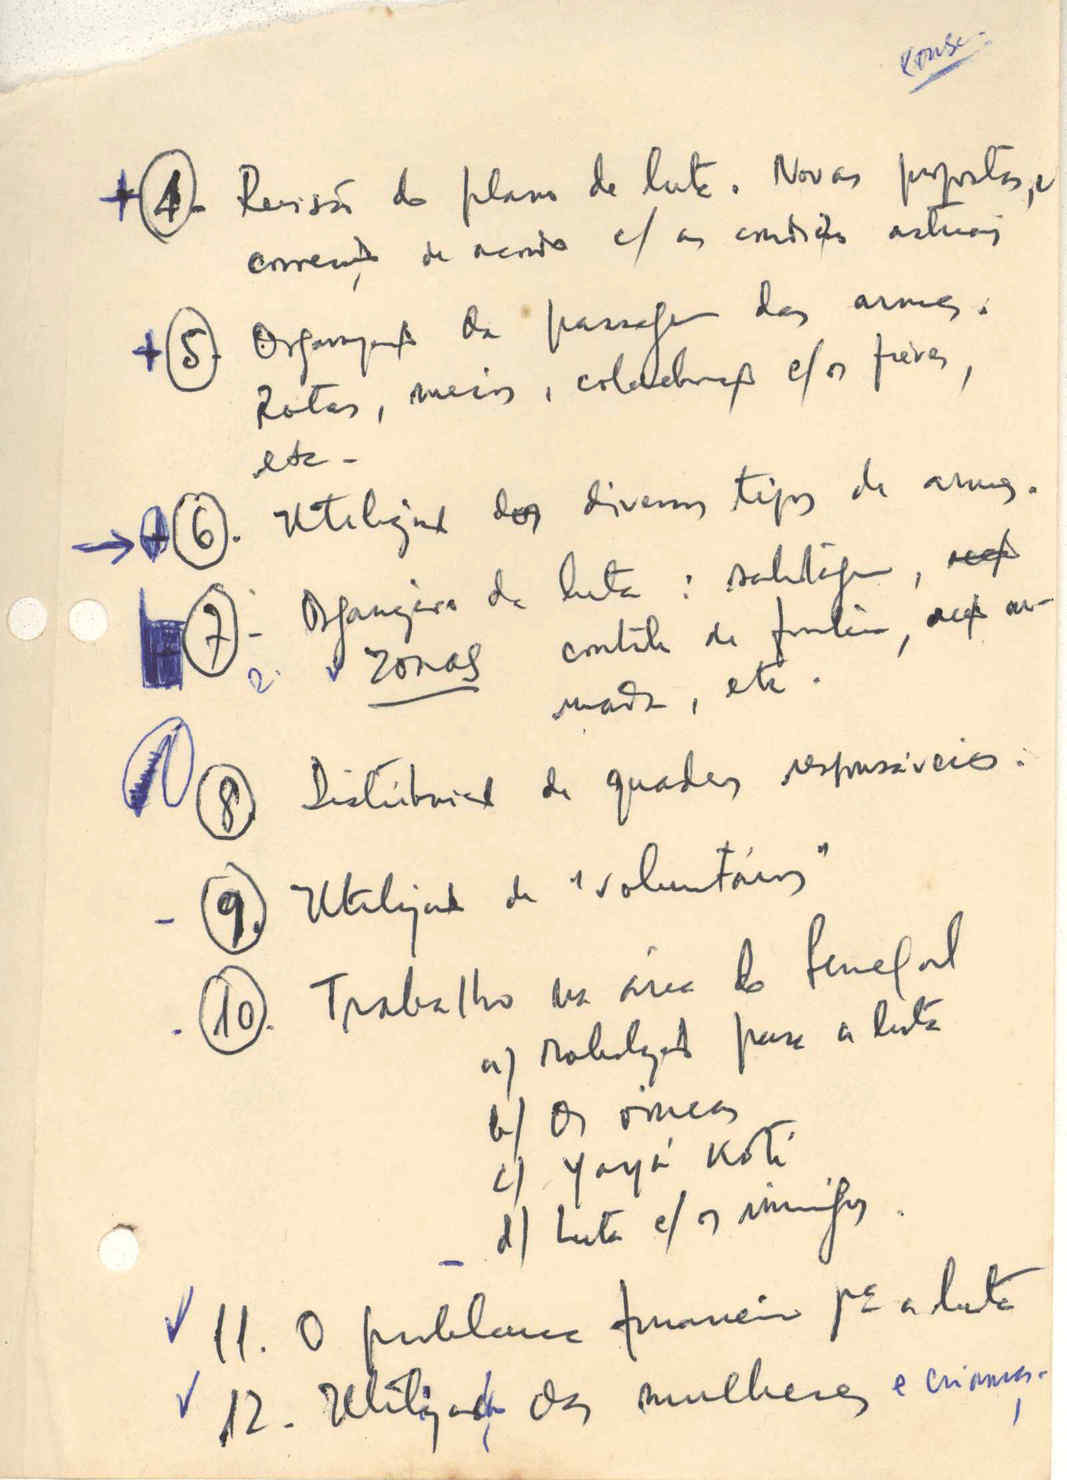 + 4. Revisão do plano de luta. Novas propostas, e
correcção de acordo c/ as condições actuais
+ 5. Organização da passagem das armas.
Rotas, meios, colaboração c/ os
etc -
→ + 6. Utilização dos diversos tipos de armas.
7 - Organização da luta : sabotagem,
2. ZONAS controle de fronteira, acção ar-
mada, etc.
8. Distribuição de quadros responsáveis.
- 9. Utilização de "voluntários"
- 10. Trabalho na área do Senegal
a) Mobilização para a luta
b) Os
c) Yayá Koté
d) Luta c/ os inimigos.
✓ 11. O problema financeiro pª a luta
✓ 12. Utilização das mulheres e crianças.